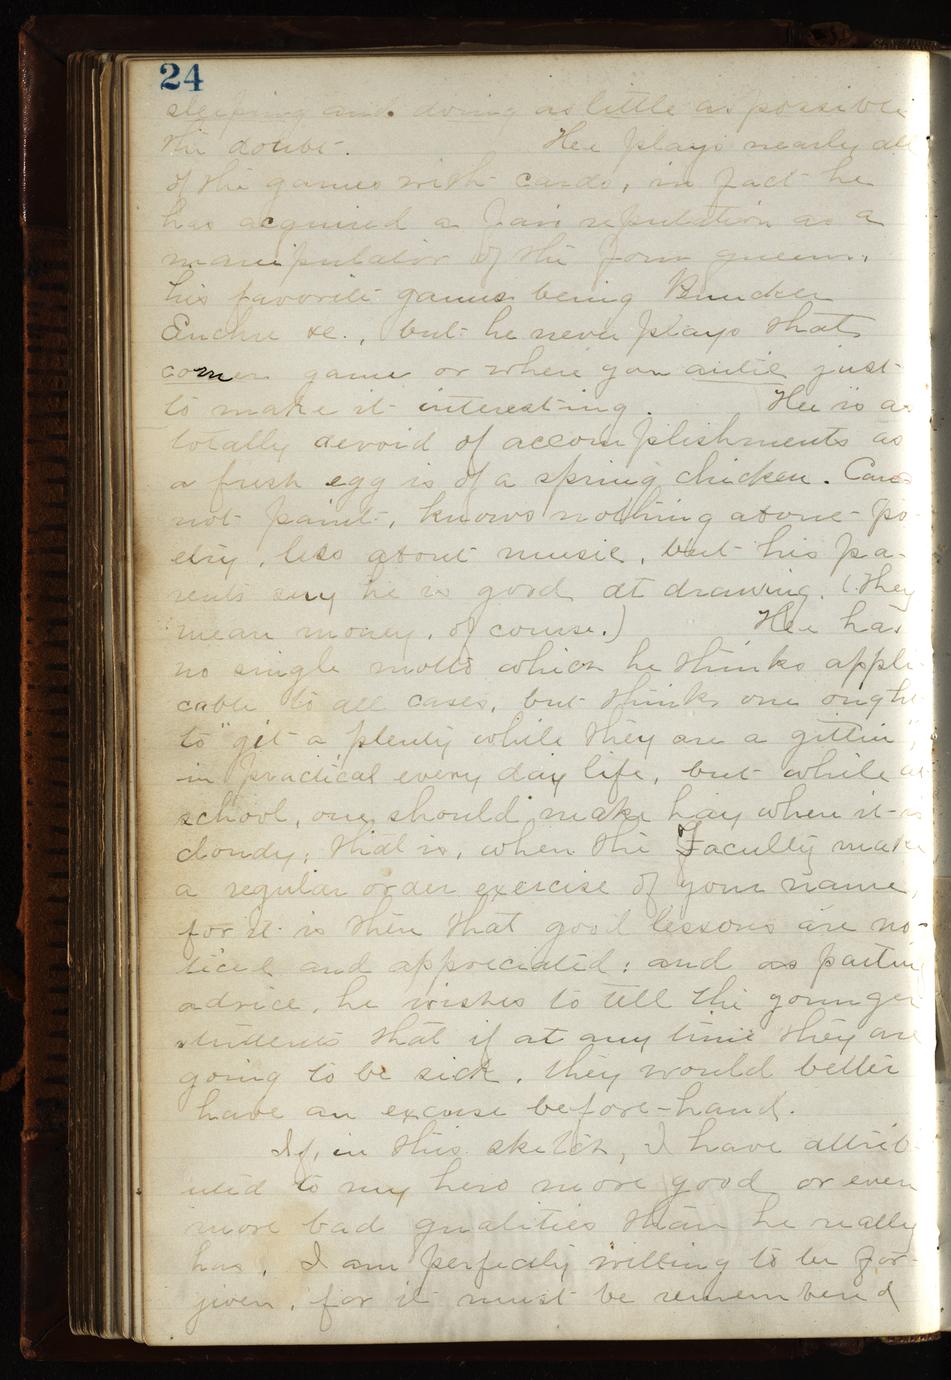 24
sleeping and doing as little as possible
the doubt. Hee plays nearly all
of the games with cards, in fact he
has acquired a fair reputation as a
manipulator of the four queens,
his favorite games being
Euchre &c., but he never plays that
corner game or where you antie just
to make it interesting. Hee is as
totally devoid of accomplishments as
a fresh egg is of a spring chicken. Can
not paint, knows nothing about po-
etry, less about music, but his pa-
rents say he is good at drawing. (They
mean money, of course.) Hee has
no single motto which he thinks appli-
cable to all cases, but thinks one ought
to "git a plenty while they are a gittin",
in practical every day life, but while at
school, one should make hay when it is
cloudy; that is, when the Faculty make
a regular order exercise of your name,
for it is then that good lessons are no-
ticed and appreciated: and as parting
advice, he wishes to tell the younger
students that if at any time they are
going to be sick, they would better
have an excuse before-hand.
If, in this sketch, I have attrib-
uted to my hero more good or even
more bad qualities than he really
has, I am perfectly willing to be for-
given, for it must be remembered